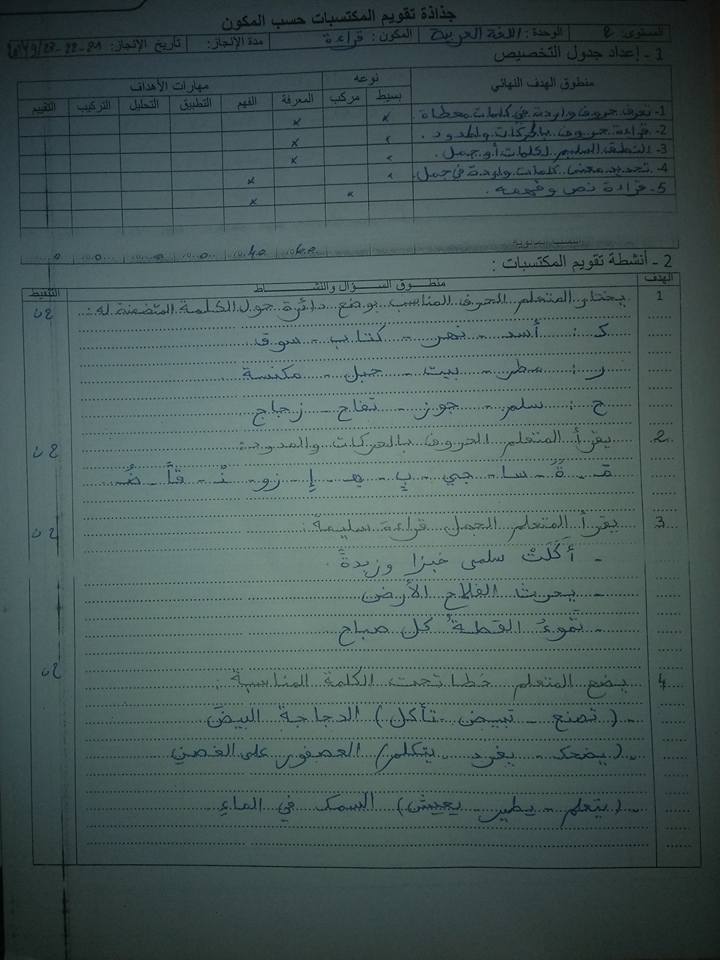 جذاذة تقويم المكتسبات حسب المكون
المستوى: 2 الوحدة: اللغة العربية المكون: قراءة مدة الإنجاز: تاريخ الإنجاز:
1 - إعداد جدول التخصيص
منطوق الهدف النهائي نوعه مهارات الأهداف
بسيط مركب المعرفة الفهم التطبيق التحليل التركيب التقييم
1- تعرف حروف واردة في كلمات معطاة. x x
2- قراءة حروف بالحركات والمدود. x x
3- النطق السليم لكلمات أو جمل. x x
4- تحديد معنى كلمات واردة في جمل. x x
5- قراءة نص وفهمه. x x
2 - أنشطة تقويم المكتسبات :
الهدف منطوق السؤال والنشاط التنقيط
1 يختار المتعلم الحرف المناسب بوضع دائرة حول الكلمة المتضمنة له: 2ن
ك : أسد - نهر - كتاب - سوق
ر : مطر - بيت - جبل - مكنسة
ح : سلم - جوز - تفاح - زجاج
2 يقرأ المتعلم الحروف بالحركات والمدود: 2ن
سا - جي - بٍ - إِ - زو - نْ - قاً - ضُ
3 يقرأ المتعلم الجمل قراءة سليمة: 2ن
- أَكَلَتْ سلمى خبزا وزبدةً.
- يحرث الفلاح الأرض
- تموءُ القطةُ كل صباح
4 يضع المتعلم خطا تحت الكلمة المناسبة : 2ن
- (تصنع - تبيض - تأكل) الدجاجة البيض
- (يضحك - يغرد - يتكلم) العصفور على الغصن
- (يتعلم - يطير - يعيش) السمك في الماءِ